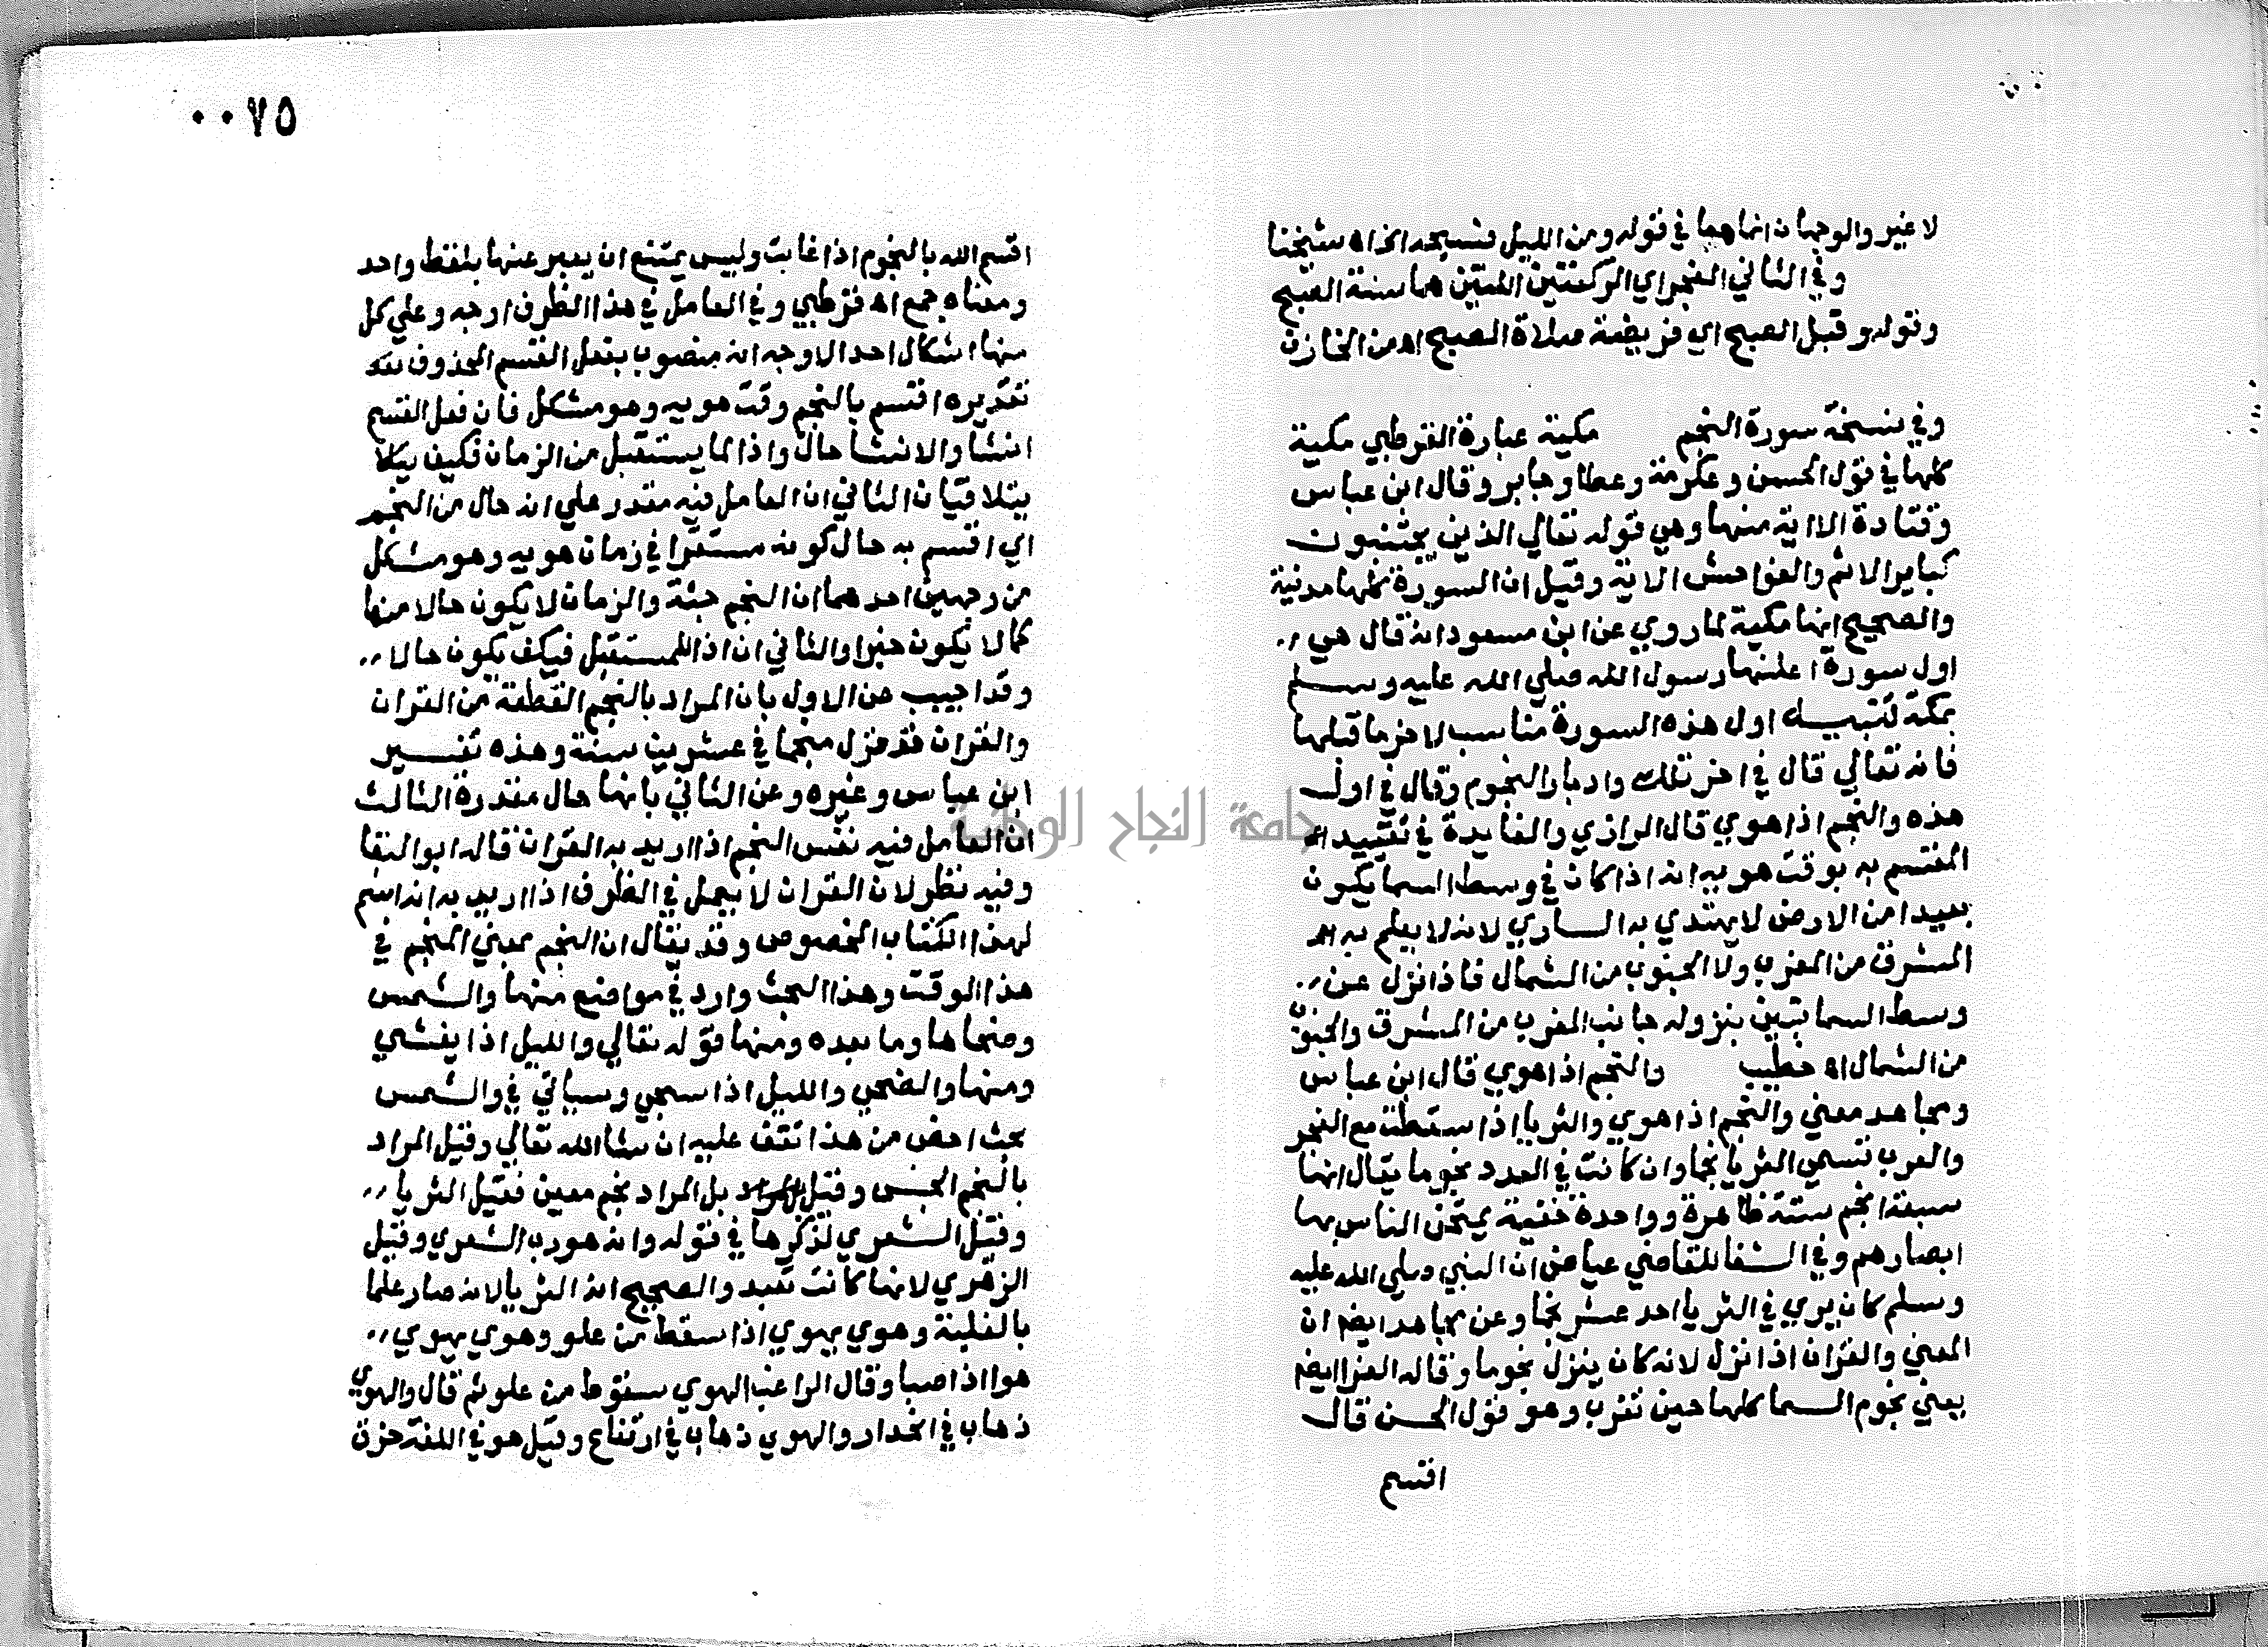 لا غير والوجهان انما هما في قوله ومن الليل فسبحه الخ اه شيخنا
وفي الثاني الفجر اي الركعتين اللتين هما سنة الصبح
وقوله وقبل الصبح اي فريضة صلاة الصبح اه من الخازن
وفي نسخة سورة النجم مكية عبارة القرطبي مكية
كلها في قول الحسن وعكرمة وعطا وجابر وقال ابن عباس
وقتادة الا اية منها وهي قوله تعالي الذين يجتنبون
كباير الاثم والفواحش الاية وقيل ان السورة كلها مدنية
والصحيح انها مكية لما روي عن ابن مسعود انه قال هي
اول سورة اعلنها رسول الله صلي الله عليه وسلم
بمكة تنبيه اول هذه السورة مناسب لاخر ما قبلها
فانه تعالي قال في اخر تلك وادبار النجوم وقال في اول
هذه والنجم اذا هوي قال الرازي والفايدة في تقييد
المقسم به بوقت هويه انه اذا كان في وسط السما يكون
بعيدا من الارض لا يهتدي به الساري لانه لا يعلم به
المشرق من المغرب ولا الجنوب من الشمال فاذا نزل عن
وسط السما تبين بنزوله جانب المغرب من المشرق والجنوب
من الشمال اه خطيب والنجم اذا هوي قال ابن عباس
ومجاهد معني والنجم اذا هوي والثريا اذا سقطت مع الفجر
والعرب تسمي الثريا نجما وان كانت في العدد نجوما يقال انها
سبعة انجم ستة ظاهرة وواحدة خفية يمتحن الناس بها
ابصارهم وفي الشفا للقاضي عياض ان النبي صلي الله عليه
وسلم كان يري في الثريا احد عشر نجما وعن مجاهد ايضا ان
المعني والقران اذا نزل لانه كان ينزل نجوما وقاله الفرا ايضا
يعني نجوم السما كلها حين تغرب وهو قول الحسن قال
اقسم
٠٠٧٥
اقسم الله بالنجوم اذا غابت وليس يمتنع ان يعبر عنها بلفظ واحد
ومعناه جمع اه قرطبي وفي العامل في هذا الظرف اوجه وعلي كل
منها اشكال احد الاوجه انه منصوب بفعل القسم المحذوف
تقديره اقسم بالنجم وقت هويه وهو مشكل فان فعل القسم
انشا والانشا حال واذا لما يستقبل من الزمان فكيف
يتلاقيان الثاني ان العامل فيه مقدر علي انه حال من النجم
اي اقسم به حال كونه مستقرا في زمان هويه وهو مشكل
من وجهين احدهما ان النجم جثة والزمان لا يكون حالا منها
كما لا يكون خبرا والثاني ان اذا للمستقبل فكيف يكون حالا
وقد اجيب عن الاول بان المراد بالنجم القطعة من القران
والقران قد نزل منجما في عشرين سنة وهذه تفسير
ابن عباس وغيره وعن الثاني بانها حال مقدرة الثالث
ان العامل فيه نفس النجم اذا اريد به القران قاله ابو البقا
وفيه نظر لان القران لا يعمل في الظرف اذا اريد به انه اسم
لهذا الكتاب المخصوص وقد يقال ان النجم بمعني المنجم في
هذا الوقت وهذا البحث وارد في مواضع منها والشمس
وضحاها وما بعده ومنها قوله تعالي والليل اذا يغشي
ومنها والضحي والليل اذا سجي وسياتي في والشمس
بحث اخص من هذا تقف عليه ان شا الله تعالي وقيل المراد
بالنجم الجنس وقيل بل المراد نجم معين فقيل الثريا
وقيل الشعري لذكرها في قوله وانه هو رب الشعري وقيل
الزهري لانها كانت تعبد والصحيح انه الثريا لانه صار علما
بالغلبة وهوي يهوي اذا سقط من علو وهوي يهوي
هوا اذا صبا وقال الراغب الهوي سقوط من علو ثم قال والهوي
ذهاب في انحدار والهوي ذهاب في ارتفاع وقيل هو في اللغة خرق
جامعة النجاح الوطنية